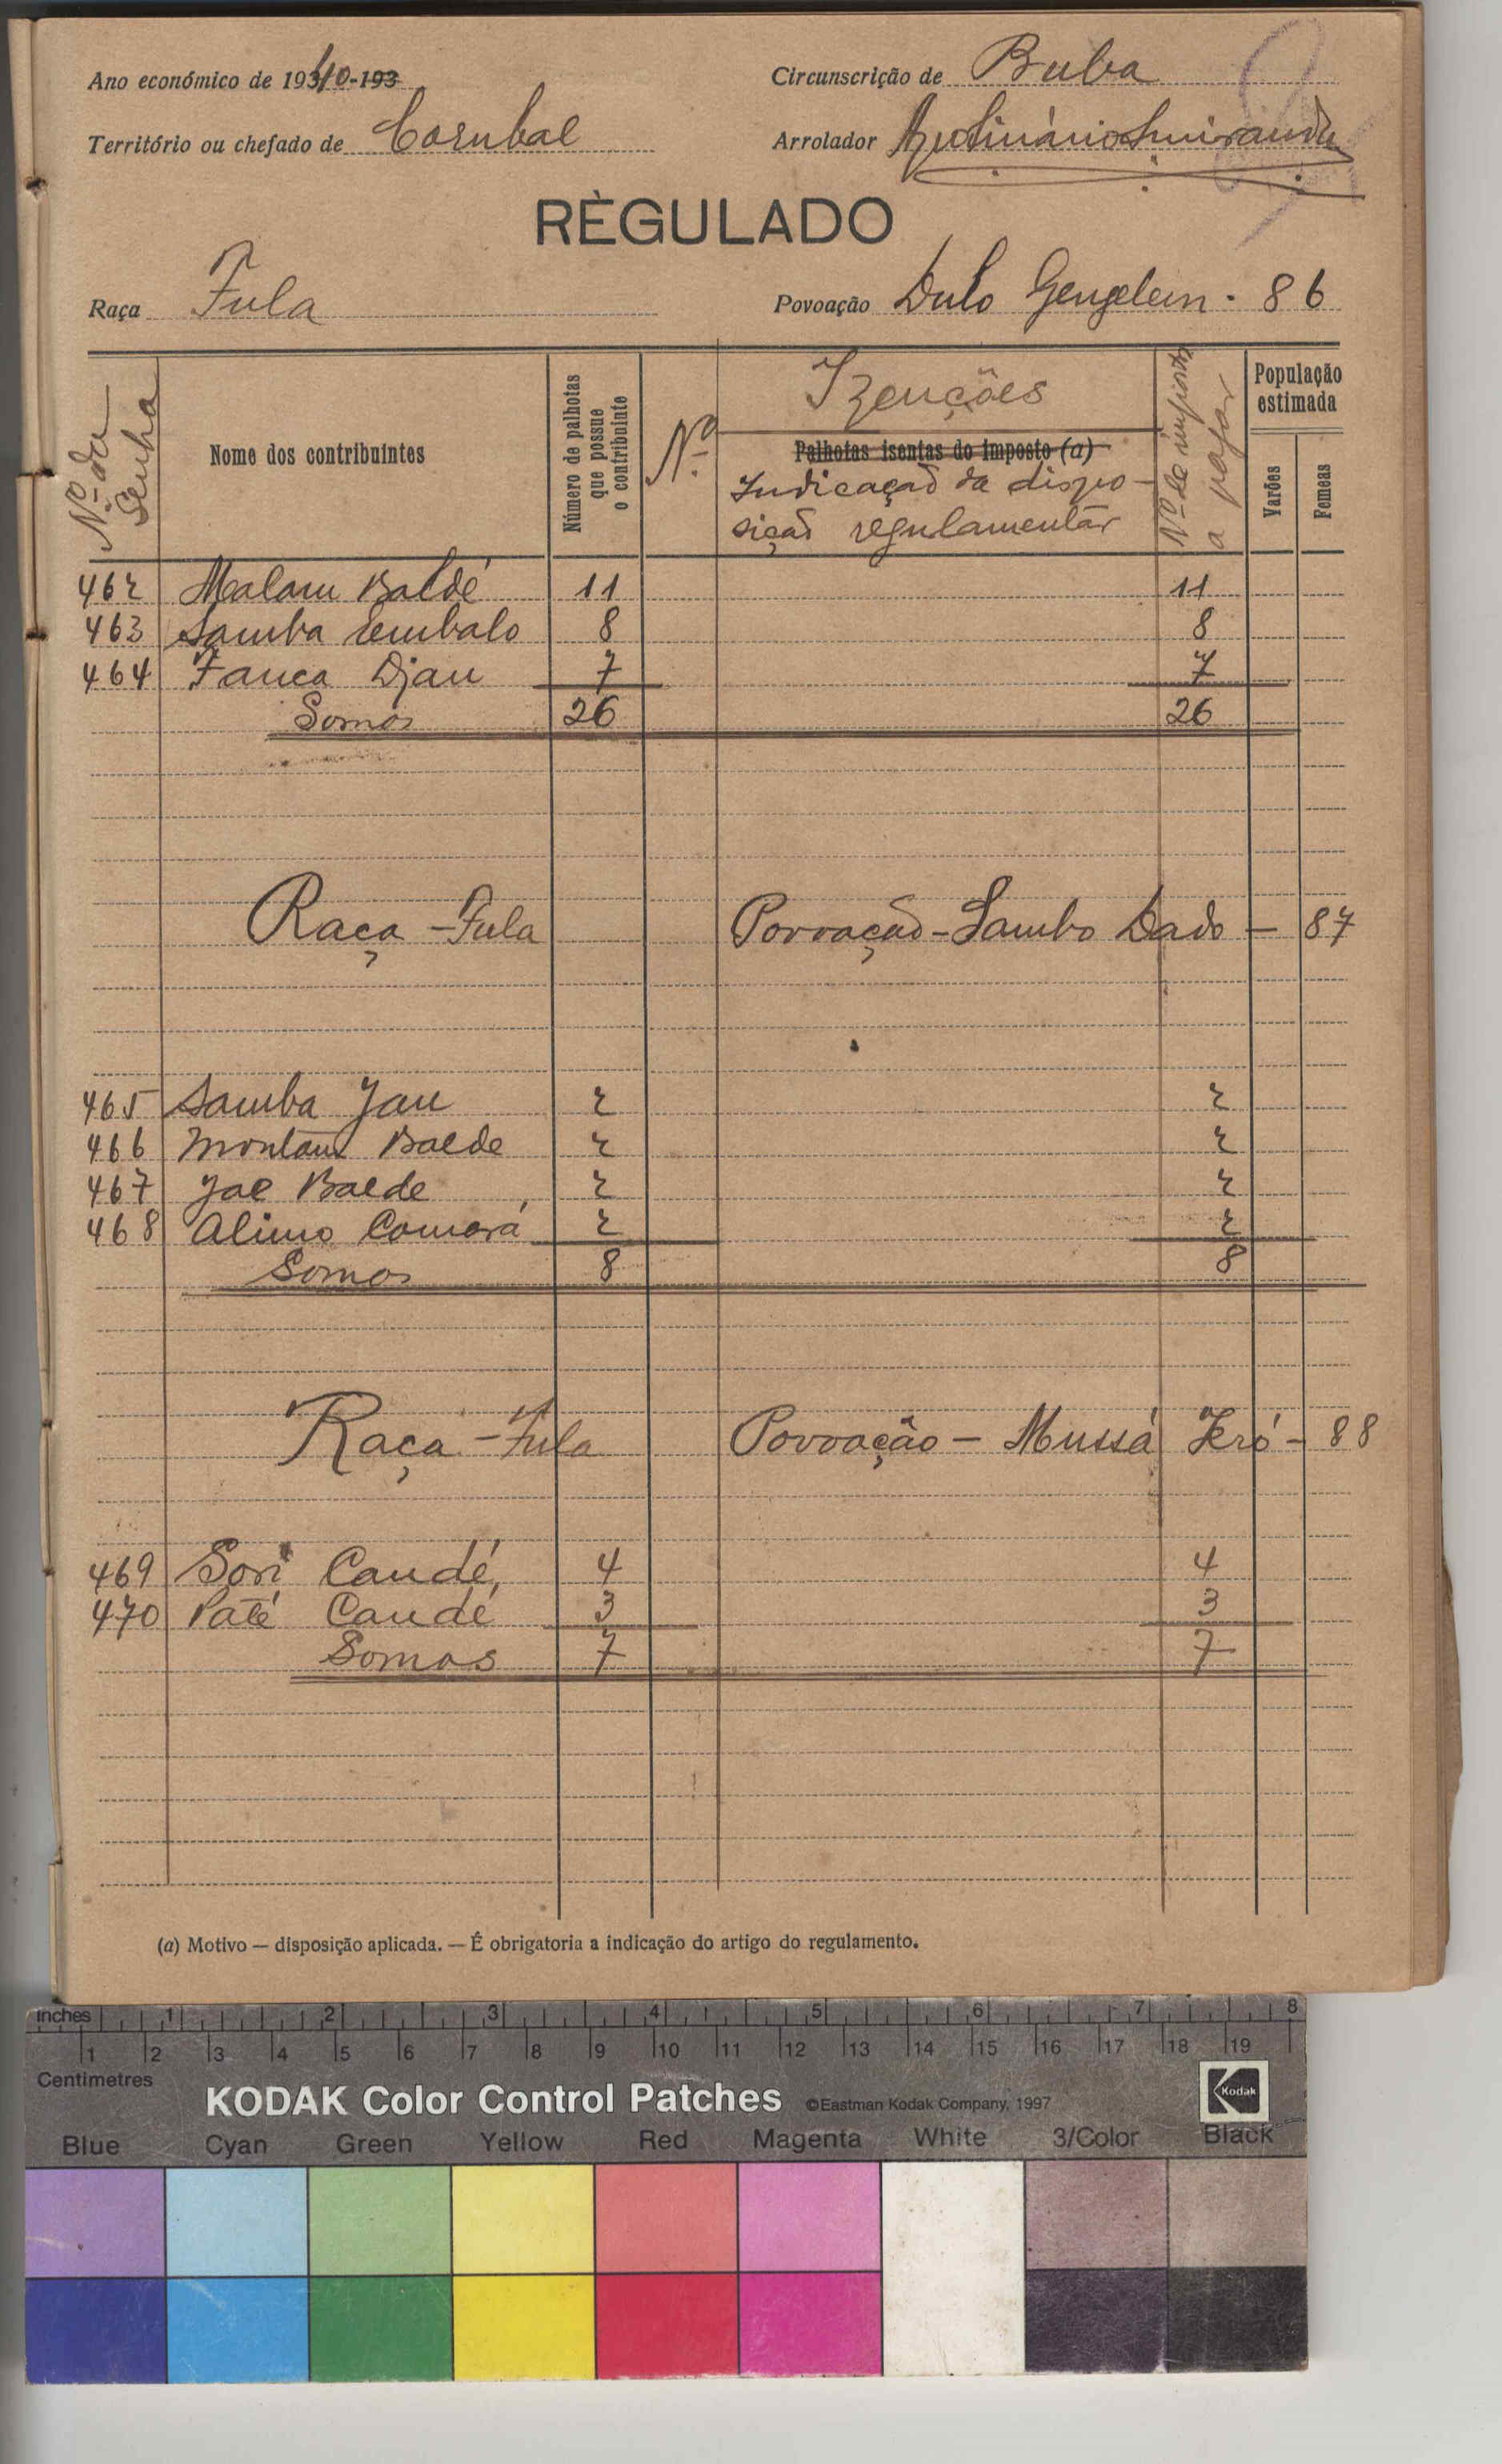 Ano económico de 1940-193 Circunscrição de Buba
Território ou chefado de Corubal Arrolador Apolinário Miranda
RÈGULADO
Raça Fula Povoação Dulo Gengelem - 86
Nº da Senha
Nome dos contribuintes
Número de palhotas que possue o contribuinte
Nº
Izenções
Palhotas isentas do imposto (a)
Indicação da dispo-
sição regulamentar
Nº de impostos a pagar
População estimada
Varões
Femeas
462 Malam Baldé 11 11
463 Samba Embalo 8 8
464 Fanca Djau 7 7
Somos 26 26
Raça - Fula Povoação - Sambo Dado - 87
465 Samba Jau 2 2
466 Montam Balde 2 2
467 Jae Balde 2 2
468 Alimo Camará 2 2
Somos 8 8
Raça - Fula Povoação - Mussá Jeró - 88
469 Sori Candé 4 4
470 Paté Candé 3 3
Somos 7 7
(a) Motivo — disposição aplicada. — É obrigatoria a indicação do artigo do regulamento.
inches 1 2 3 4 5 6 7 8
1 2 3 4 5 6 7 8 9 10 11 12 13 14 15 16 17 18 19
Centimetres
KODAK Color Control Patches ©Eastman Kodak Company, 1997 Kodak
Blue Cyan Green Yellow Red Magenta White 3/Color Black